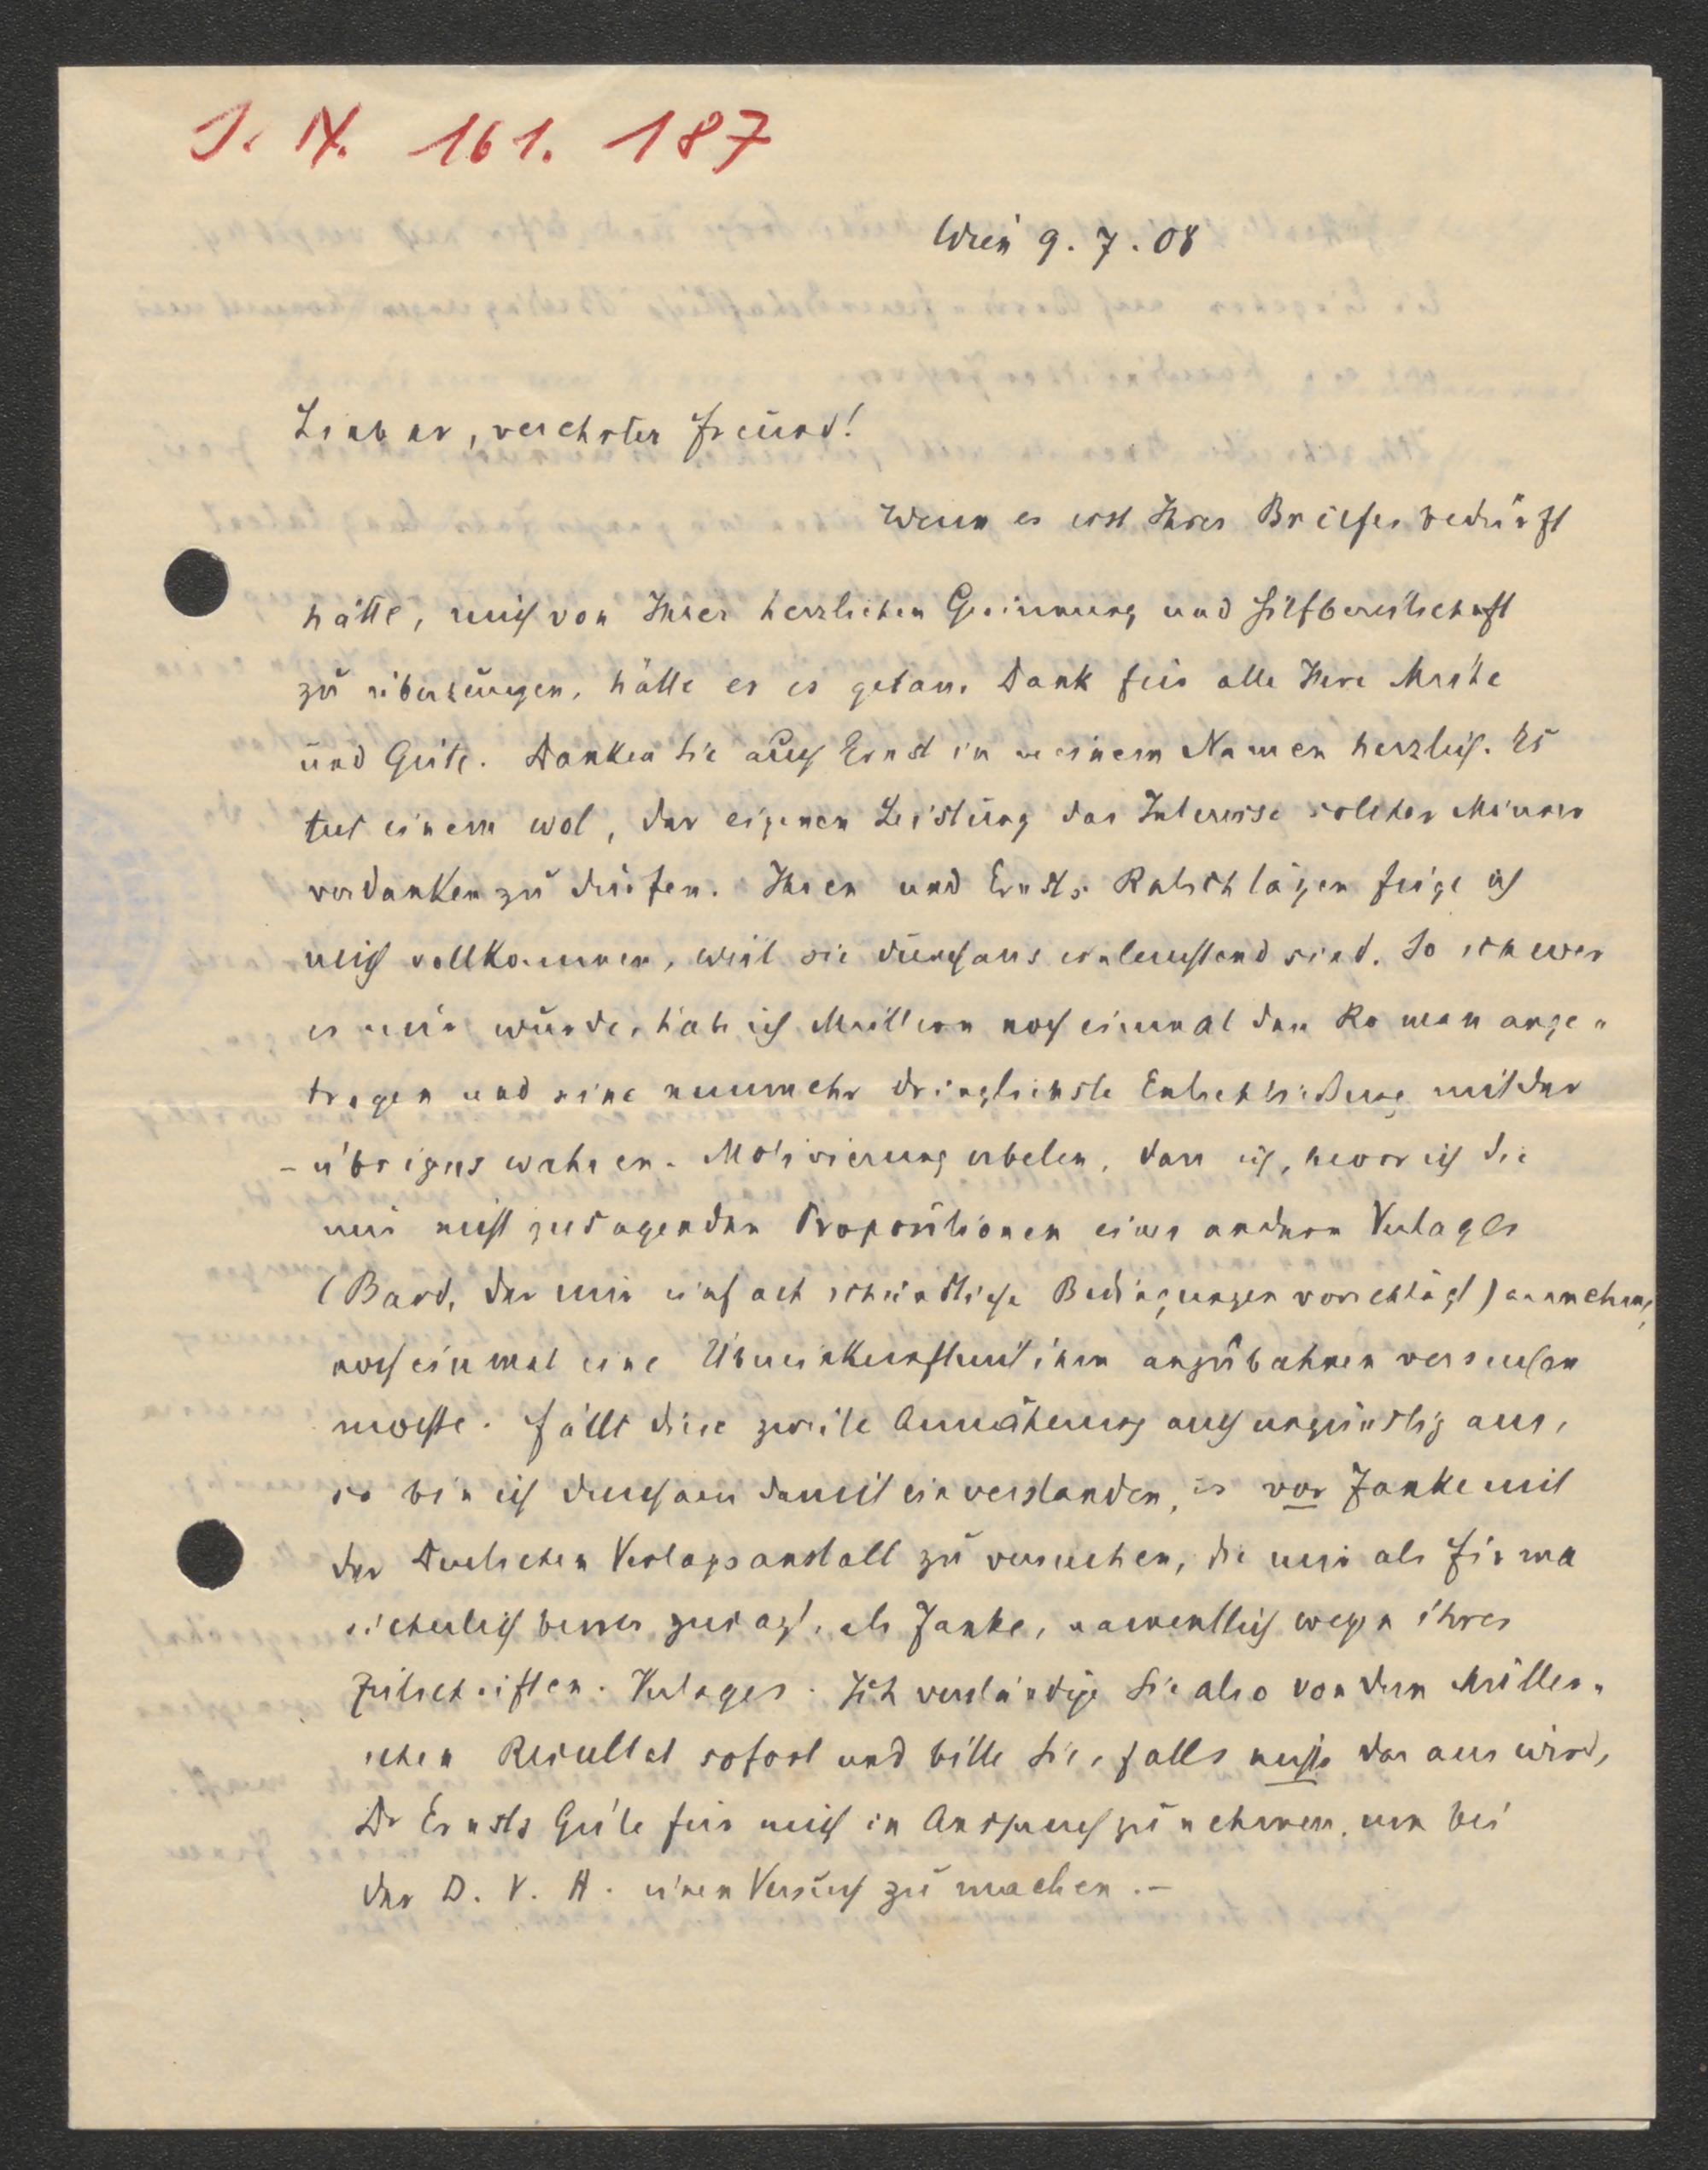 I. N. 161. 187
Wien 9. 7. 08
Lieber, verehrter Freund!
Wenn es erst Ihres Briefes bedürft
hätte, mich von Ihrer herzlichen Gesinnung und Hilfbereitschaft
zu überzeugen, hätte er es getan. Dank für alle Ihre Mühe
und Güte. Danken Sie auch Ernst in meinem Namen herzlich. Es
tut einem wol, der eigenen Leistung das Interesse solcher Männer
verdanken zu dürfen. Ihren und Ernsts Ratschlägen füge ich
mich vollkommen, weil sie durchaus einleuchtend sind. So schwer
es mir wurde, hab ich Müllern noch einmal den Roman ange-
tragen und seine nunmehr dringlichste Entschließung mit der
- übrigens wahren - Motivierung erbeten, dass ich, bevor ich die
mir nicht zusagenden Propositionen eines andern Verlages
(Bard, der mir einfach schändliche Bedingungen vorschlägt) annehme,
noch einmal eine Übereinkunft mit ihm anzubahnen versuchen
mochte. Fällt diese zweite Annäherung auch ungünstig aus,
so bin ich durchaus damit einverstanden, es vor Janke mit
der Deutschen Verlagsanstalt zu versuchen, die mir als Firma
sicherlich besser zusagt, als Janke, namentlich wegen ihres
Zeitschriften-Verlages. Ich verständige Sie also von dem Müller-
schen Resultat sofort und bitte Sie, falls nichts daraus wird,
Dr Ernsts Güte für mich in Anspruch zu nehmen, um bei
der D. V. A. einen Versuch zu machen. -